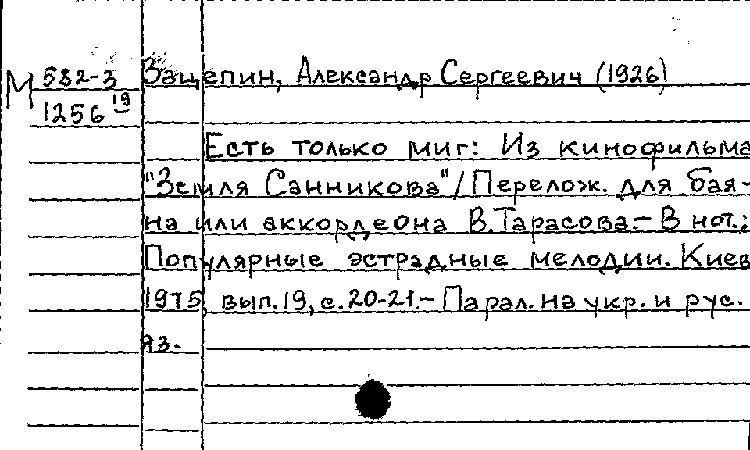 М 582-3 Зацепин, Александр Сергеевич (1926)
1256 19
Есть только миг: Из кинофильма
"Земля Санникова"/Перелож. для бая-
на или аккордеона В.Тарасова.- В нот.:
Популярные эстрадные мелодии. Киев
1975, вып.19, с.20-21.- Парал. на укр. и рус.
яз.